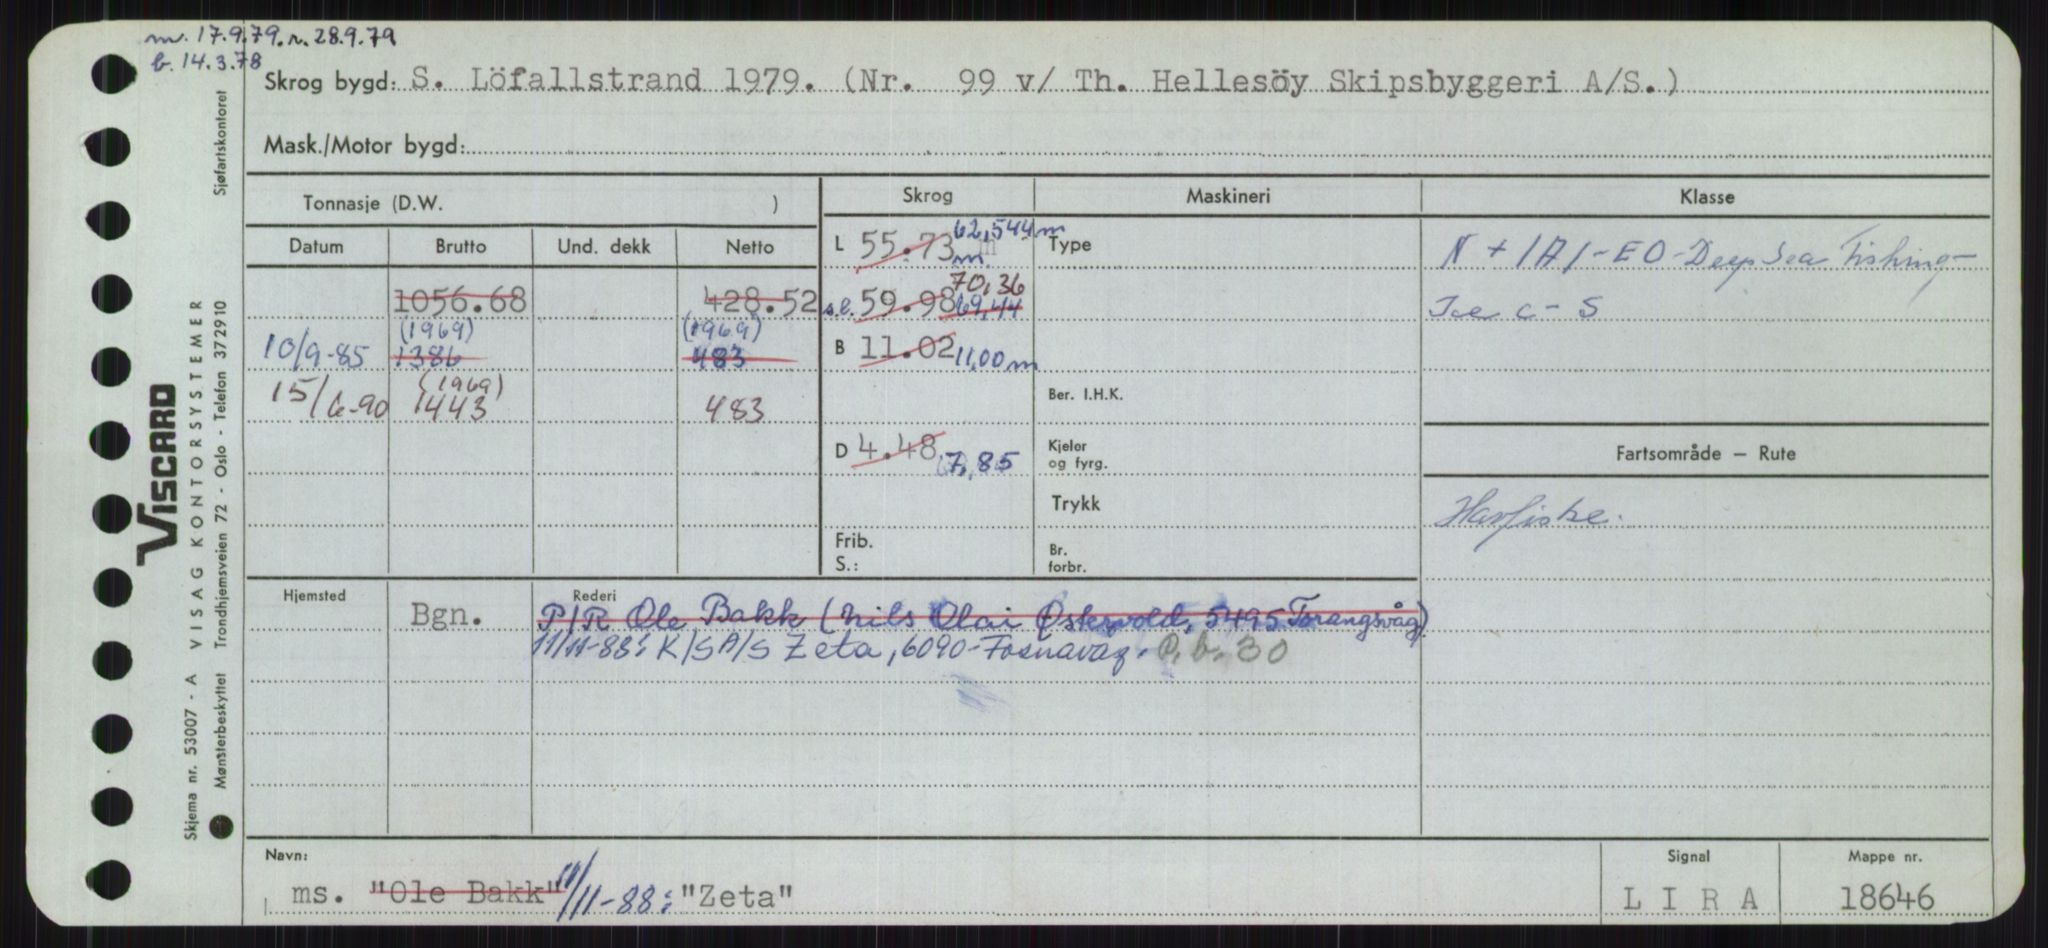 m. 17.9.79. r. 28.9.79
b. 14.3.78
Skrog bygd: S. Löfallstrand 1979. (Nr. 99 v/ Th. Hellesöy Skipsbyggeri A/S.)
Mask./Motor bygd:
Tonnasje (D.W. )
Skrog
Maskineri
Klasse
Datum Brutto Und. dekk Netto
L 55.73 m 62,544 m
Type
N + 1A1 - EO - Deep Sea Fishing -
Ice C - S
1056.68 428.52
s.l. 59.98 69,44 70,36
(1969) (1969)
10/9-85 1386 483
B 11.02 11,00 m
(1969)
15/6-90 1443 483
Ber. I.H.K.
D 4.48 7,85
Kjeler
og fyrg.
Fartsområde – Rute
Trykk
Havfiske.
Frib.
S.:
Br.
forbr.
Hjemsted Rederi
Bgn. P/R Ole Bakk (Nils Olai Østervold, 5495 Torangsvåg)
11/11-88: K/S A/S Zeta, 6090-Fosnavåg. P.b. 30
Navn:
ms. "Ole Bakk" 11/11-88: "Zeta"
Signal
L I R A
Mappe nr.
18646
VISCARD
VISAG KONTORSYSTEMER
Sjøfartskontoret
Trondhjemsveien 72 - Oslo - Telefon 372910
Skjema nr. 53007 - A
Mønsterbeskyttet